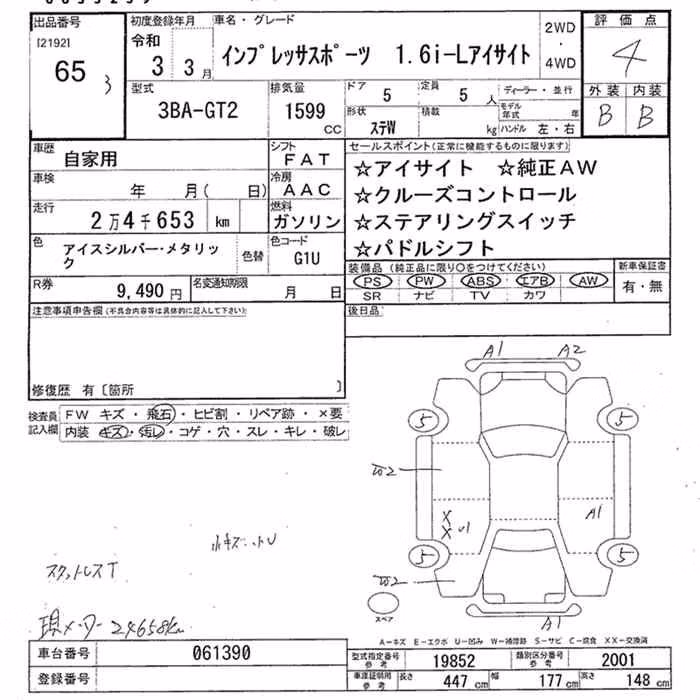 出品番号
[2192]
65
3
初度登録年月
令和
3 3月
車名・グレード
インプレッサスポーツ 1.6i-Lアイサイト
2WD
・
4WD
評価点
4
外装 内装
B B
型式
3BA-GT2
排気量
1599
CC
ドア
5
定員
5 人
形状
ステW
積載
kg
ディーラー・並行
モデル年式 年
ハンドル 左・右
車歴
自家用
シフト
FAT
車検
年 月( 日)
冷房
AAC
走行
2万4千653 km
燃料
ガソリン
色
アイスシルバー・メタリック
色替
色コード
G1U
R券
9,490円
名変通知期限
月 日
セールスポイント(正常に機能するものに限ります)
☆アイサイト ☆純正AW
☆クルーズコントロール
☆ステアリングスイッチ
☆パドルシフト
装備品(純正品に限り○をつけてください)
PS PW ABS エアB AW
SR ナビ TV カワ
新車保証書
有・無
後日品
注意事項申告欄(不具合内容等は具体的に記入して下さい)
修復歴 有〔箇所 〕
検査員記入欄
FW キズ・飛石・ヒビ割・リペア跡・×要
内装 キズ・汚レ・コゲ・穴・スレ・キレ・破レ
A1 A2
5 5
W2
X
X
U1
A1
5 5
W2
スペア
A1
現メーター24658km
A=キズ E=エクボ U=凹み W=補修跡 S=サビ C=腐食 XX=交換済
車台番号
061390
登録番号
型式指定番号
参考
19852
類別区分番号
参考
2001
車庫証明用
参考
長さ 447 cm 幅 177 cm 高さ 148 cm